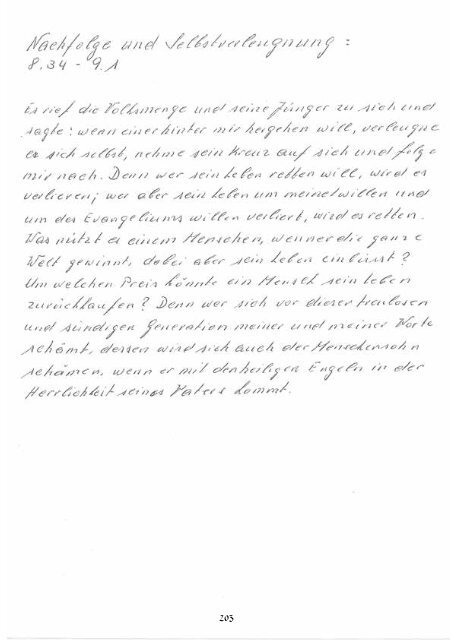 Nachfolge und Selbstverleugnung :
8.34 - 9.1
Er rief die Volksmenge und seine Jünger zu sich und
sagte: wenn einer hinter mir hergehen will, verleugne
er sich selbst, nehme sein Kreuz auf sich und folge
mir nach. Denn wer sein Leben retten will, wird es
verlieren; wer aber sein Leben um meinetwillen und
um des Evangeliums willen verliert, wird es retten.
Was nützt es einem Menschen, wenn er die ganze
Welt gewinnt, dabei aber sein Leben einbüsst?
Um welchen Preis könnte ein Mensch sein Leben
zurückkaufen? Denn wer sich vor dieser treulosen
und sündigen Generation meiner und meiner Worte
schämt, dessen wird sich auch der Menschensohn
schämen, wenn er mit den heiligen Engeln in der
Herrlichkeit seines Vaters kommt.
203